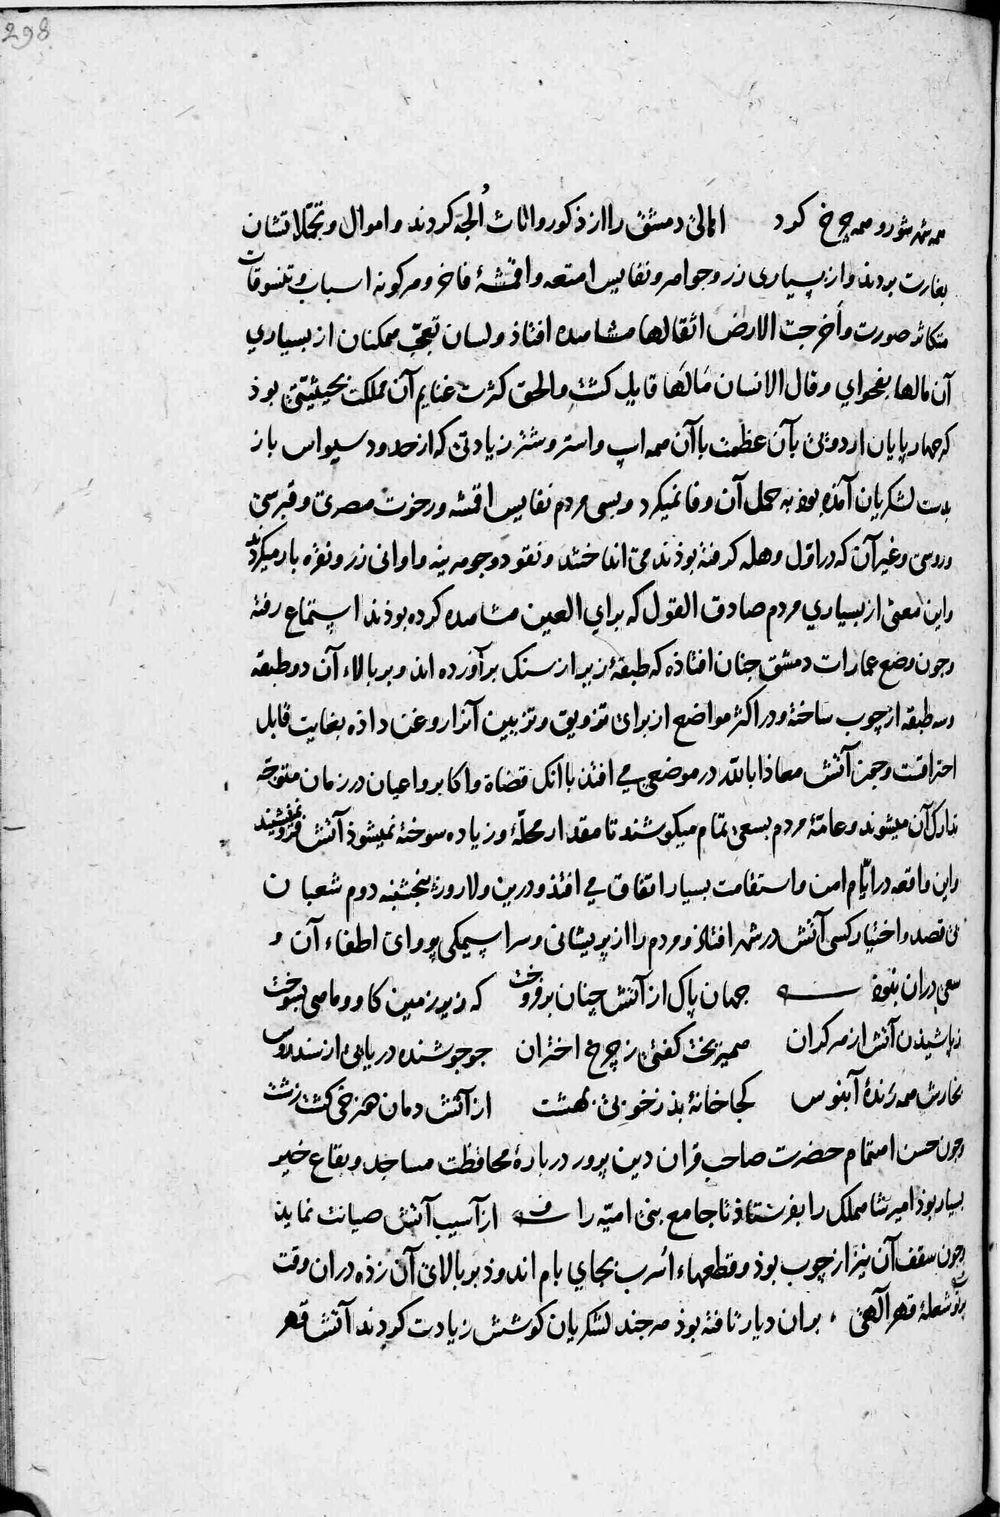 298
همه شهر شور و همه چرخ کرد اهالی دمشق را از ذکور و اناث اُلجه کردند و اموال و تجمّلاتشان
بغارت بردند و از بسیاری زر و جواهر و نفایس امتعه و اقمشهٔ فاخر و هرکونه اسباب و تنسوقات
متکاثر صورت و أخرجت الارض اثقالها مشاهده افتاذ و لسان تعجّب ممکنان از بسیاری
آن مالها بفحوای و قال الانسان مَالهَا قایل کشت و الحق کثرت غنایم آن مملکت بحیثیّتی بوذ
که چهارپایان اردوئی بآن عظمت با آن همه اسپ و استر و شتر زیادتی که از حدود سیواس باز
بدست لشکریان آمَذه بوذ به حمل آن وفا نمیکرد و بسی مردم نفایس اقمشه و رخوت مصری و قبرسی
و روسی و غیر آن که در اوّل وهله کرفته بوذند می انداختند و نقود و جوهرینه و اوانی زر و نقره بار میکردند
و این معنی از بسیاری مردم صادق القول که برای العین مشاهده کرده بوذند استماع رفته
و جون وضع عمارات دمشق جنان افتاذه که طبقهٔ زیر از سنک برآورده اند و بر بالاء آن دو طبقه
و سه طبقه از چوب ساخته و در اکثر مواضع از برای تزویق و تزیین آنرا روغن داذه بغایت قابل
احتراقست و جون آتش معاذا بالله در موضعی می افتذ با آنک قضاة و اکابر و اعیان در زمان متوجّه
تدارک آن میشوند و عامّهٔ مردم بسعی تمام میکوشند تا مقدار محلّهٔ و زیاده سوخته نمیشوذ آتش فرو نمینشیند
و این واقعه در ایّام امن و استقامت بسیار اتفاق می افتذ و درین ولا روز پنجشنبه دوم شعبان
بی قصد و اختیار کسی آتش در شهر افتاذ و مردم را از پریشانی و سراسیمکی پروای اطفاء آن و
سعی دران نبوذ جهان پاک از آتش چنان برفروخت که زیر زمین کاو و ماهی بسوخت
زپاشیذن آتش از هر کران همیریخت کفتی ز چرخ اختران جو جوشنده دریایی از سندروس
بخارش همه زندهٔ آبنوس کجا خانهٔ بذ ز خوبی بهشت از آتش دمان دوزخی کشت زشت
و جون حسن اهتمام حضرت صاحب قران دین پرور در بارهٔ محافظت مساجد و بقاع خیر
بسیار بوذ امیر شاهملک را بفرستاذ تا جامع بنی امیّه را از آسیب آتش صیانت نماید
و جون سقف آن نیز از چوب بوذ و قطعهاء اُسرب بجای بام اندوذ بر بالای آن زذه دران وقت
پرتو شعلهٔ قهر آلهی بران دیار تافته بوذ هر جند لشکریان کوشش زیادت کردند آتش قهر